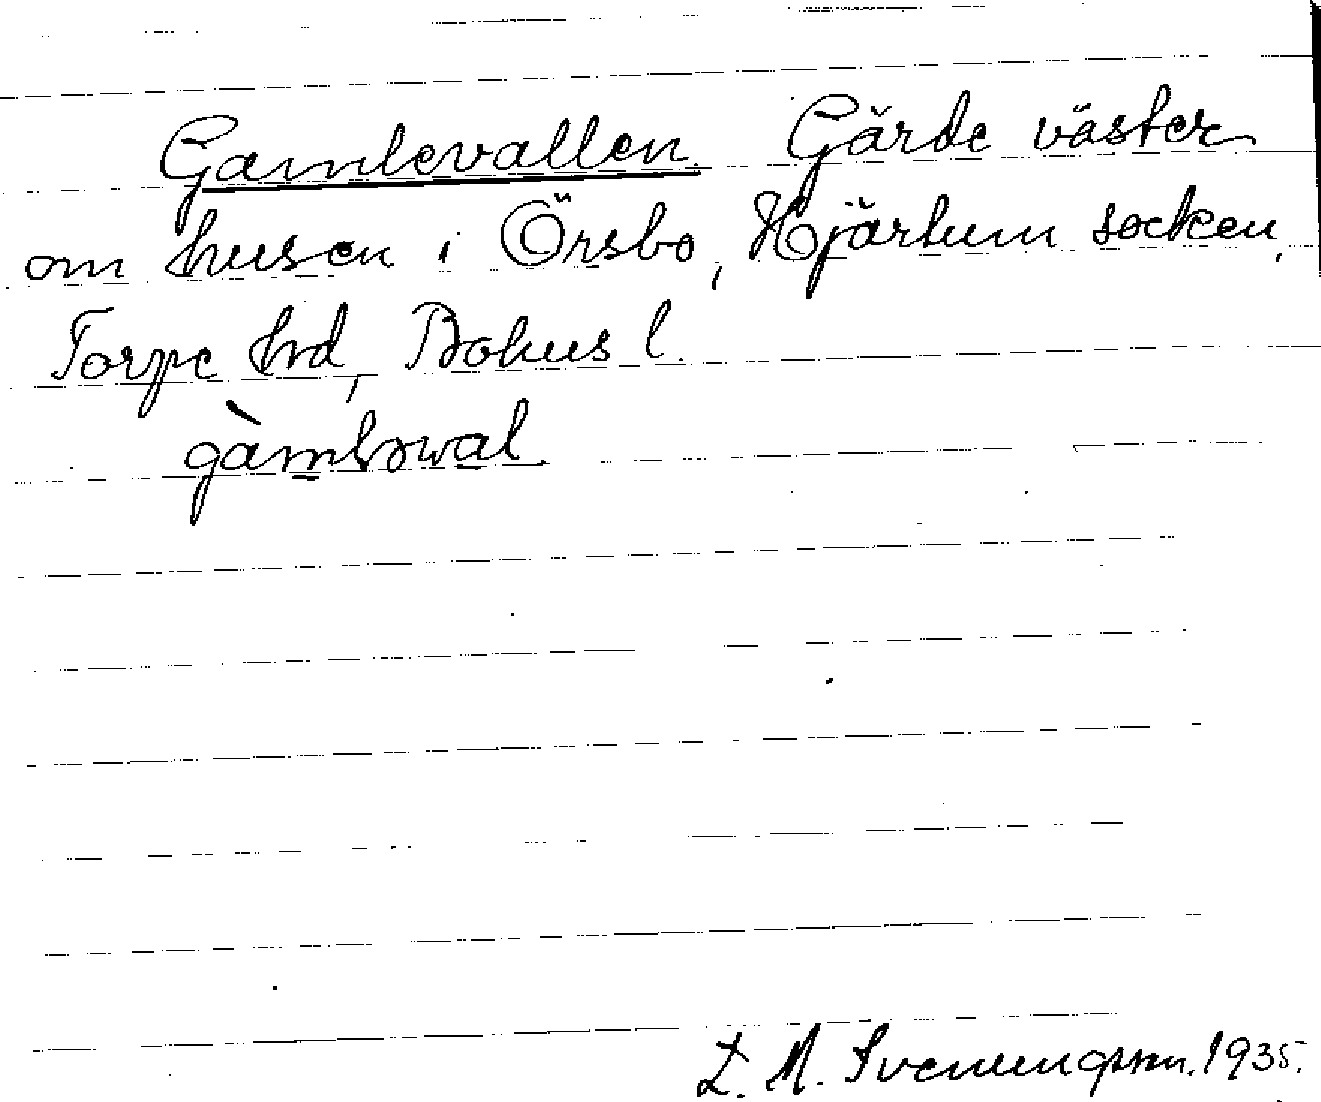 Gamlevallen. Gärde väster
om husen i Örsbo, Hjärtum socken,
Torpe hrd, Bohus l.
gàmləwal
L. M. Svenungsson. 1935.